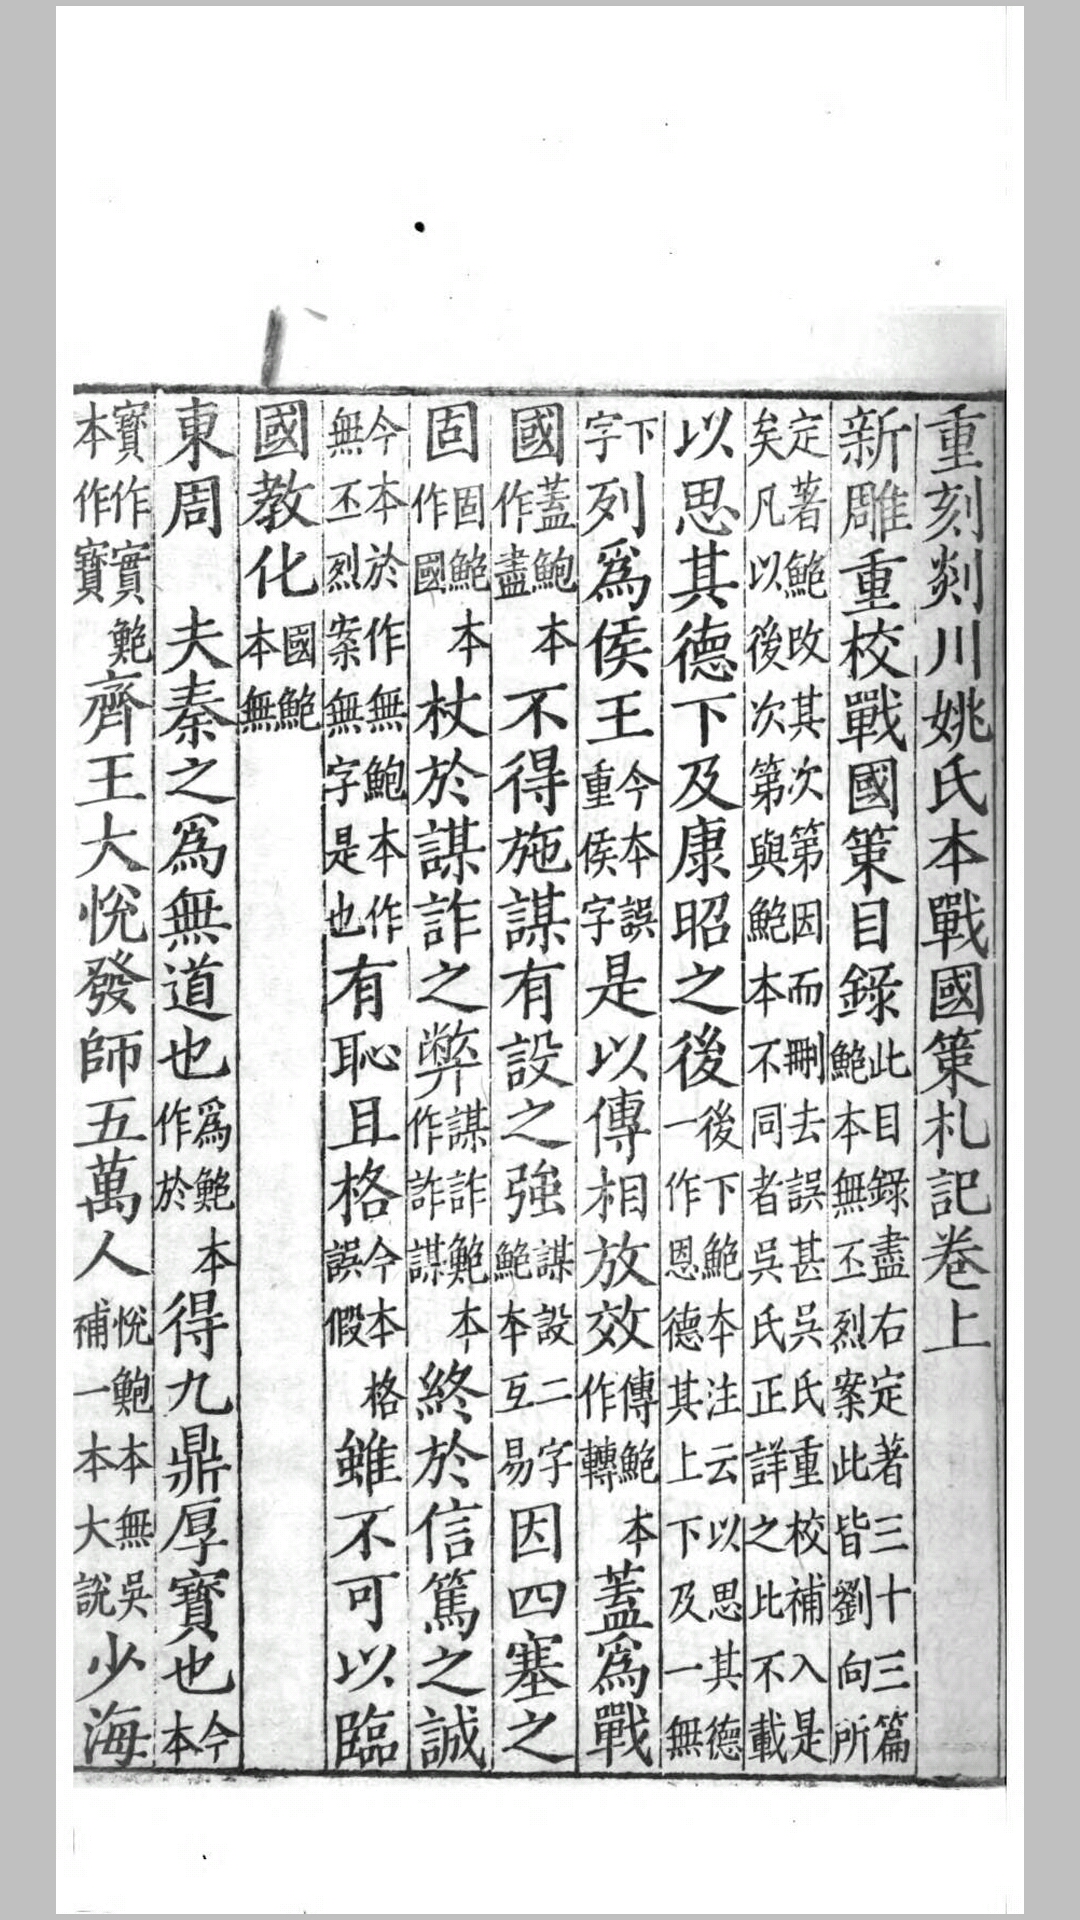 重刻剡川姚氏本戰國策札記卷上
新雕重校戰國策目錄此目錄盡右定著三十三篇鮑本無丕烈案此皆劉向所
定著鮑攺其次第因而刪去誤甚吳氏重校補入是矣凡以後次第與鮑本不同者吳氏正詳之比不載
以思其德下及康昭之後後下鮑本注云以思其德一作恩德其上下及一無
下字列爲侯王今本誤重侯字是以傳相放效傳鮑本作轉蓋爲戰
國蓋鮑本作盡不得施謀有設之強謀設二字鮑本互易因四塞之
固固鮑本作國杖於謀詐之弊謀詐鮑本作詐謀終於信篤之誠
今本於作無鮑本作無丕烈案無字是也有恥且格今本格誤假雖不可以臨
國教化國鮑本無
東周　夫秦之爲無道也爲鮑本作於得九鼎厚寶也今本
寶作實鮑本作寶齊王大悅發師五萬人悅鮑本無吳補一本大說少海